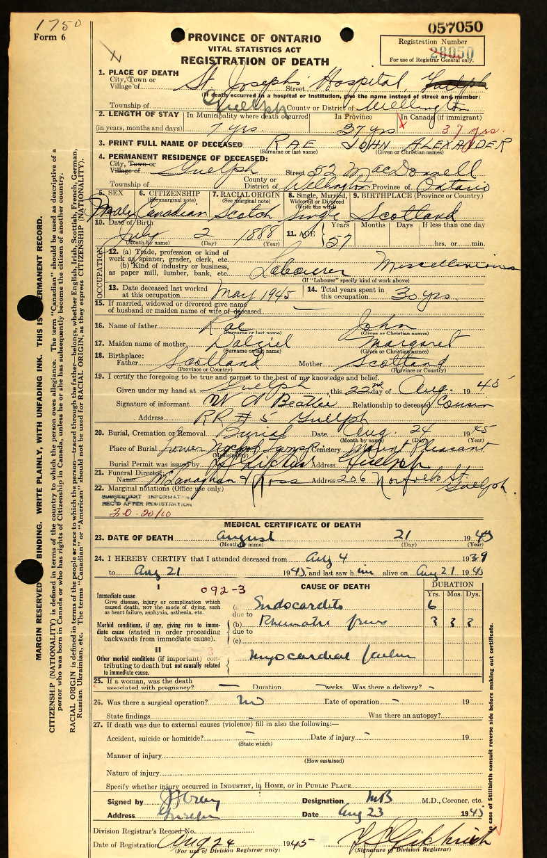 1750
Form 6
PROVINCE OF ONTARIO
VITAL STATISTICS ACT
REGISTRATION OF DEATH
057050
Registration Number
28050
For use of Registrar General only.
1. PLACE OF DEATH St Josephs Hospital Guelph
City, Town or
Village of
(If death occurred in a hospital or institution, give the name instead of street and number)
Township of Guelph County or District of Wellington
2. LENGTH OF STAY In Municipality where death occurred In Province In Canada (if immigrant)
(in years, months and days) 7 yrs. 37 yrs 37 yrs.
3. PRINT FULL NAME OF DECEASED RAE JOHN ALEXANDER
(Surname or last name) (Given or Christian names)
4. PERMANENT RESIDENCE OF DECEASED:
City, Town or
Village of Guelph Street 52 MacDonell
Township of County or District of Wellington Province of Ontario
5. SEX 6. CITIZENSHIP 7. RACIAL ORIGIN 8. Single, Married, Widowed or Divorced 9. BIRTHPLACE (Province or Country)
Male Canadian Scotch Single Scotland
10. Date of Birth July 2 1888 11. AGE 57
(Month by name) (Day) (Year)
Years Months Days If less than one day
hrs. or min.
OCCUPATION
12. (a) Trade, profession or kind of work as spinner, grader, clerk, etc.
(b) Kind of industry or business, as paper mill, lumber, bank, etc.
Labourer Miscellaneous
(If "Labourer" specify kind of work above)
13. Date deceased last worked at this occupation May 1945 14. Total years spent in this occupation 30 yrs.
15. If married, widowed or divorced give name of husband or maiden name of wife of deceased
16. Name of father Rae John
(Surname or last name) (Given or Christian names)
17. Maiden name of mother Dalziel Margaret
(Surname or last name) (Given or Christian names)
18. Birthplace:
Father Scotland Mother Scotland
(Province or Country) (Province or Country)
19. I certify the foregoing to be true and correct to the best of my knowledge and belief.
Given under my hand at Guelph this 22nd day of Aug. 1945
Signature of informant W A Beattie Relationship to deceased Cousin
Address RR # 5 Guelph
20. Burial, Cremation or Removal Burial Date Aug. 24 1945
(Month by name) (Day) (Year)
Place of Burial Cemetery Mount Pleasant
Burial Permit was issued by Address Guelph
21. Funeral Director
Name McLanaghan & Ross Address 206 Norfolk St Guelph.
22. Marginal notations (Office use only)
SUBSEQUENT INFORMATION
REC'D AFTER REGISTRATION
MEDICAL CERTIFICATE OF DEATH
23. DATE OF DEATH August 21 1945
(Month by name) (Day) (Year)
24. I HEREBY CERTIFY that I attended deceased from Aug 4 1939
to Aug 21 1945 and last saw him alive on Aug 21 1945
092-3 CAUSE OF DEATH DURATION
Yrs. Mos. Dys.
Immediate cause
Give disease, injury or complication which caused death, not the mode of dying, such as heart failure, asphyxia, asthenia, etc.
(a) Endocarditis 6
due to
Morbid conditions, if any, giving rise to immediate cause (stated in order proceeding backwards from immediate cause).
(b) Rheumatic fever 3 3 3
due to
(c)
II
Other morbid conditions (if important) contributing to death but not causally related to immediate cause.
myocardial failure
25. If a woman, was the death associated with pregnancy? Duration weeks Was there a delivery?
26. Was there a surgical operation? no Date of operation 19
State findings Was there an autopsy?
27. If death was due to external causes (violence) fill in also the following:—
Accident, suicide or homicide? Date of injury 19
(State which)
Manner of injury
(How sustained)
Nature of injury
Specify whether injury occurred in INDUSTRY, in HOME, or in PUBLIC PLACE
Signed by Designation MB M.D., Coroner, etc.
Address Guelph Date Aug 23 1945
Division Registrar's Record No.
Date of Registration Aug 24 1945
(For use of Division Registrar only) (Signature of Division Registrar)
MARGIN RESERVED FOR BINDING. WRITE PLAINLY, WITH UNFADING INK. THIS IS A PERMANENT RECORD.
CITIZENSHIP (NATIONALITY) is defined in terms of the country to which the person owes allegiance. The term "Canadian" should be used as descriptive of a person who was born in Canada or who has rights of Citizenship in Canada, unless he or she has subsequently become the citizen of another country.
RACIAL ORIGIN is defined in terms of the people or race to which the person—traced through the father—belongs, whether English, Irish, Scottish, French, German, Russian, Ukrainian, etc. The terms "Canadian" or "American" should not be used for RACIAL ORIGIN, as they express CITIZENSHIP (NATIONALITY).
case of Stillbirth consult reverse side before making out certificate.